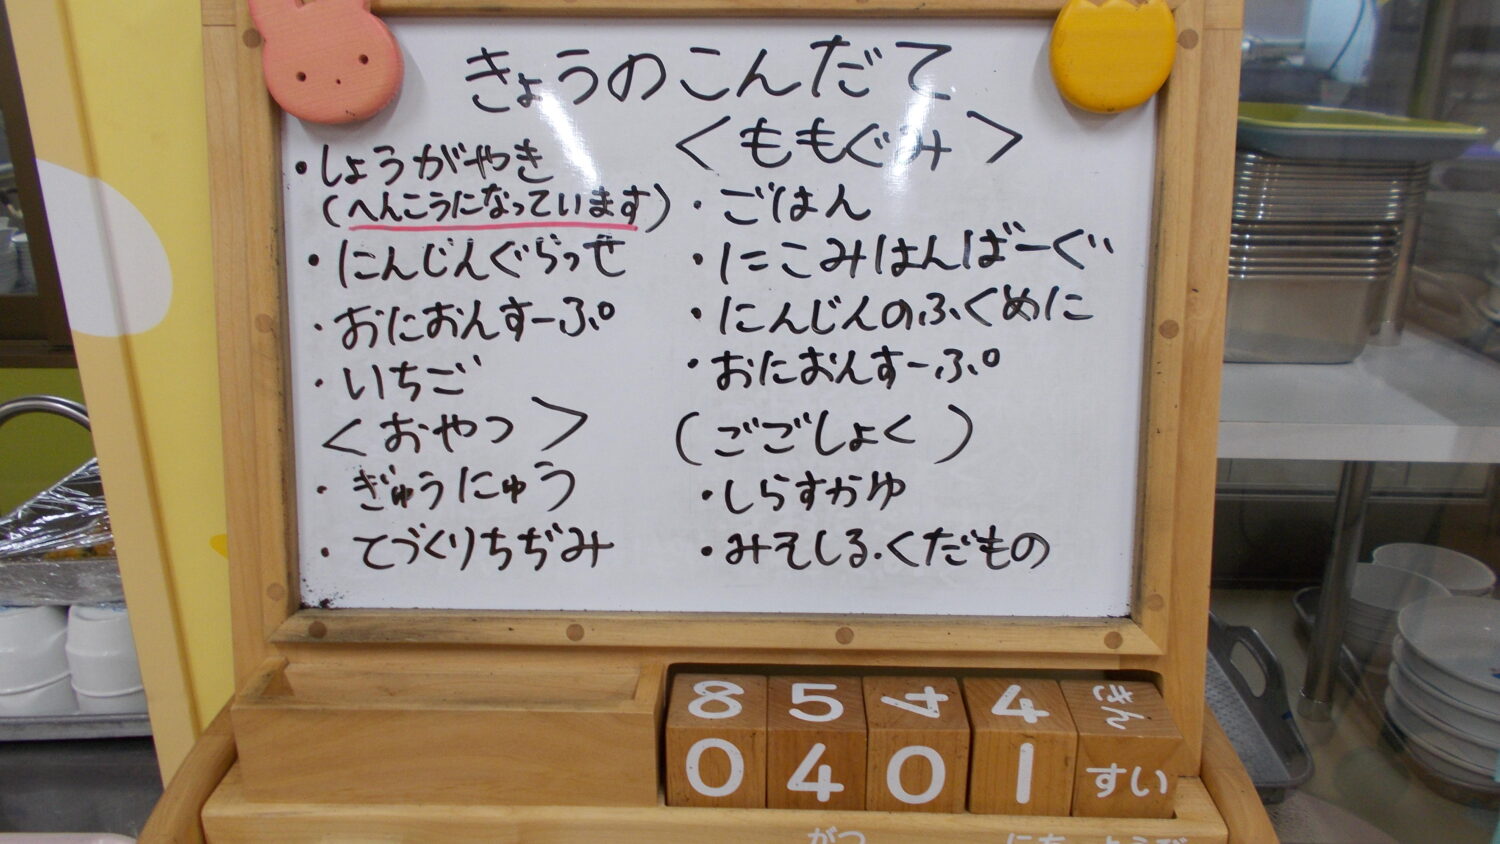 きょうのこんだて
・しょうがやき
(へんこうになっています)
・にんじんぐらっせ
・おにおんすーぷ
・いちご
<おやつ>
・ぎゅうにゅう
・てづくりちぢみ
<ももぐみ>
・ごはん
・にこみはんばーぐ
・にんじんのふくめに
・おにおんすーぷ
(ごごしょく)
・しらすかゆ
・みそしる・くだもの
8 5 4 4 きん
0 4 0 1 すい
がつ にち ようび